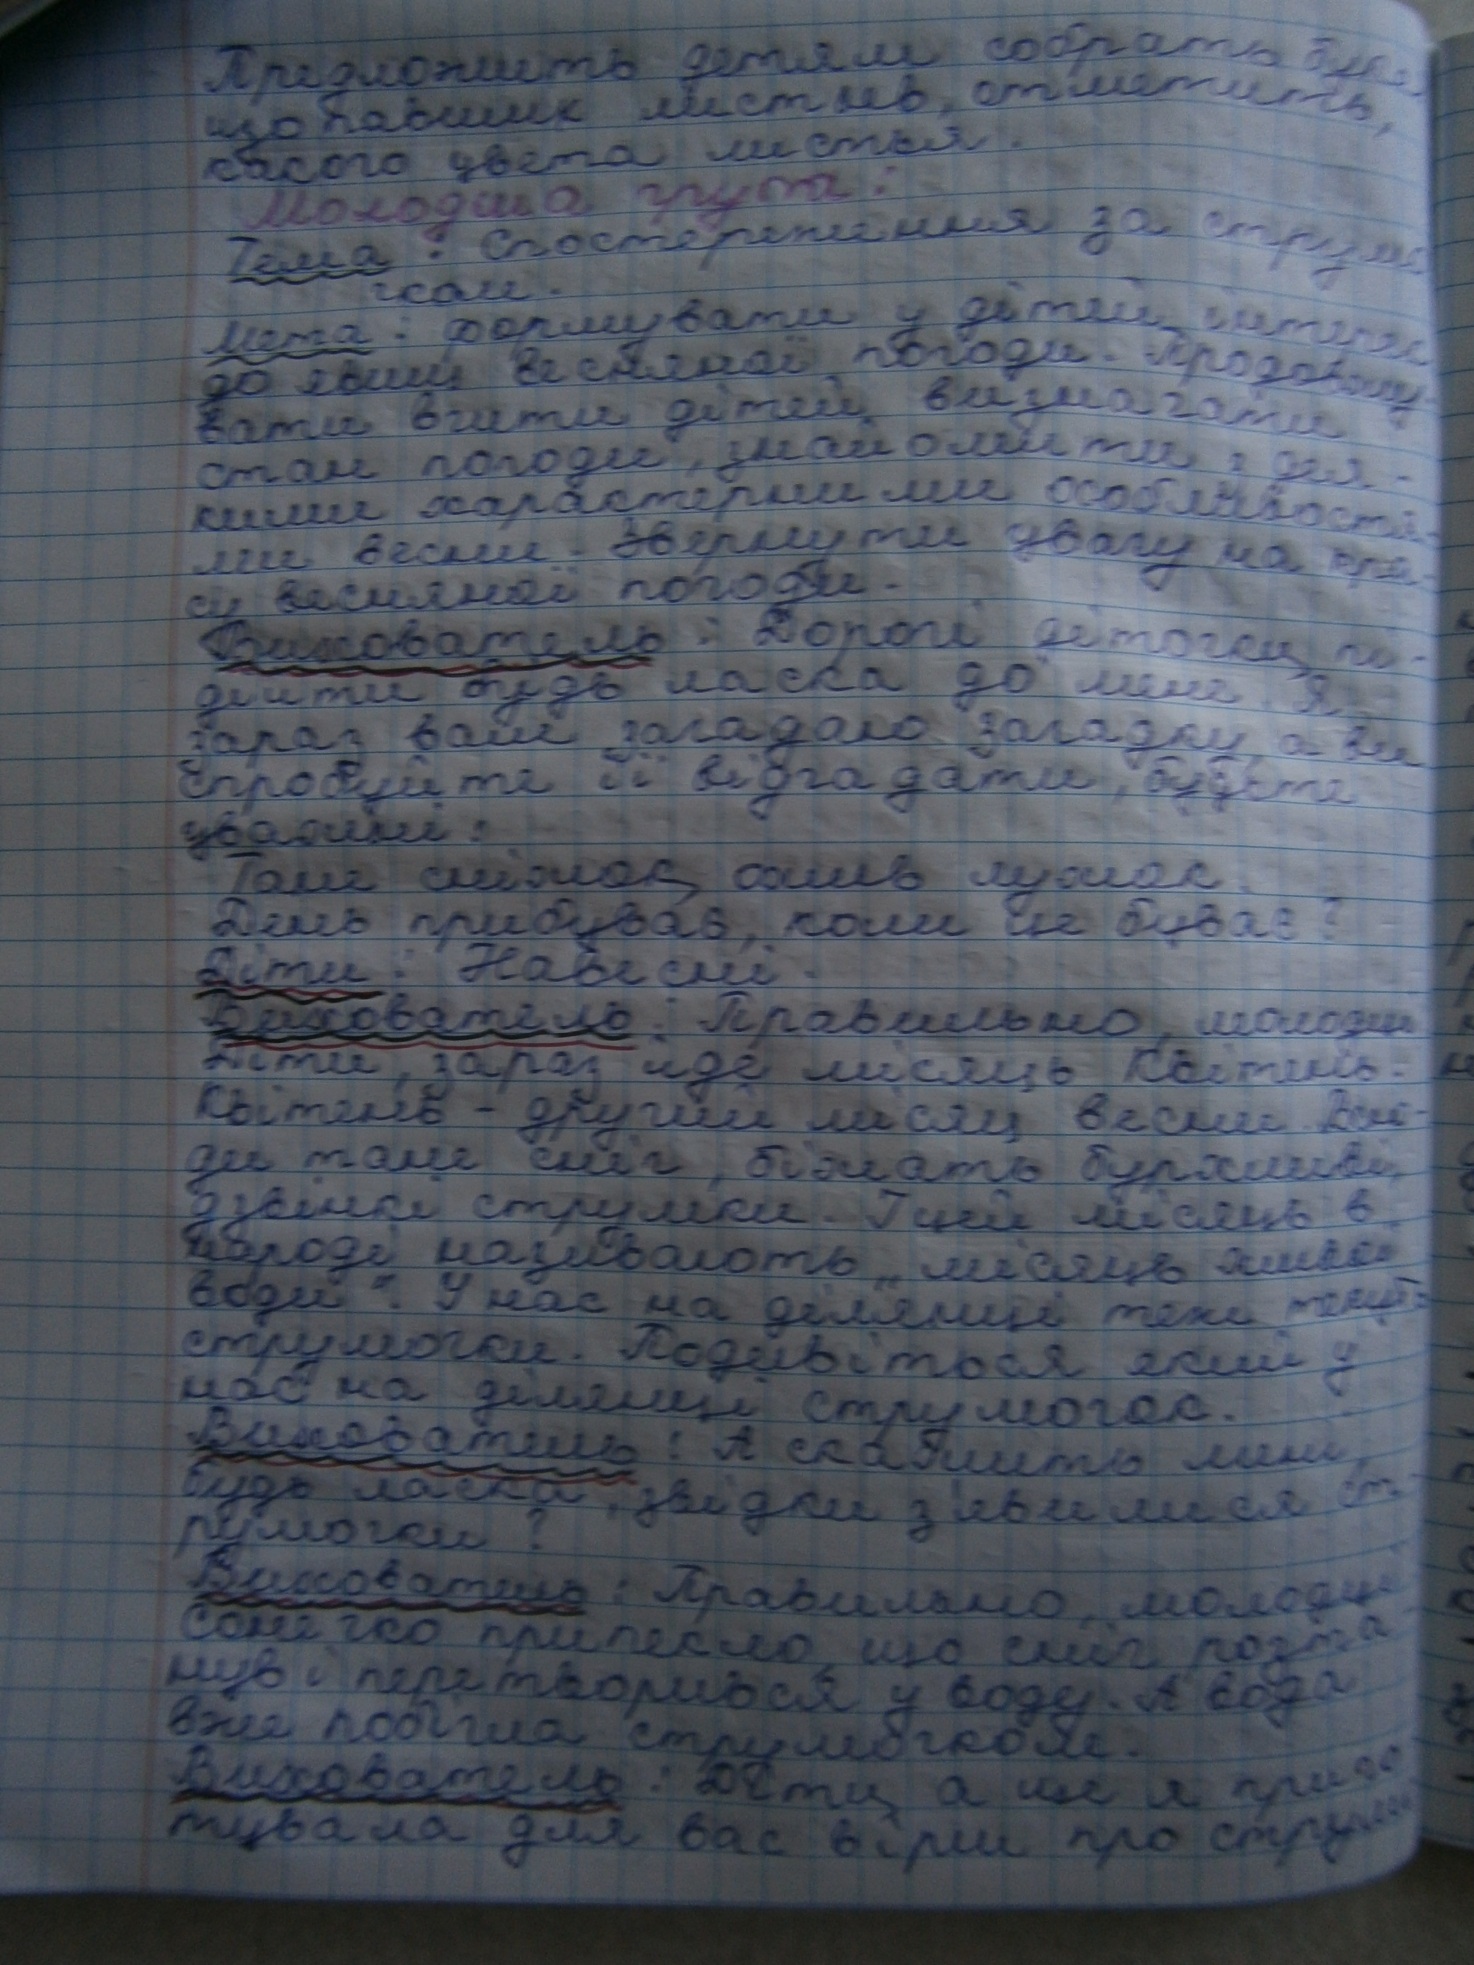 Предложить детям собрать буке
що павших листьев, отметить,
какого цвета листья.
Молодша група:
Тема: Спостереження за струмо
чком.
Мета: Формувати у дітей інтерес
до явищ весняної погоди. Продовжу-
вати вчити дітей визначати
стан погоди, знайомити з дея-
кими характерними особливостя-
ми весни. Звернути увагу на кра-
су весняної погоди.
Вихователь: Дорогі діточки, пі-
дійти будь ласка до мене. Я
зараз вам загадаю загадку, а ви
спробуйте її відгадати, будьте
уважні:
Тане сніжок, ожив лужок.
День прибуває, коли це буває?
Діти: Навесні.
Вихователь: Правильно, молодці
Діти, зараз йде місяць Квітень.
Квітень - другий місяц весни.
ди тане сніг, біжать бурхливі,
дзвінкі струмки. І цей місяць в
народі називають „місяць живої
води". У нас на ділянці теж течуть
струмочки. Подивіться який у
нас на ділянці струмочок.
Вихователь: А скажить мені,
будь ласка, звідки з'явилися ст-
румочки?
Вихователь: Правильно, молодці
Сонечко припекло, що сніг розта-
нув і перетворився у воду. А вода
вже побігла струмочком.
Вихователь: Діти, а ще я приго
тувала для вас вірш про струмок